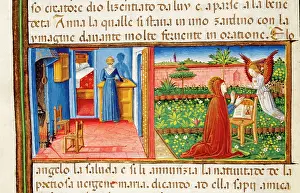 so citatore dio lizentiato da luy e aparse a la bene
deta Anna la qualle si staua in uno zardino con la
ymagine dauante molte feruente in oratione. El
angelo la saluda e si li annunzia la natiuitade de la
pretiosa uergene maria. dicando ad ella sapii amica